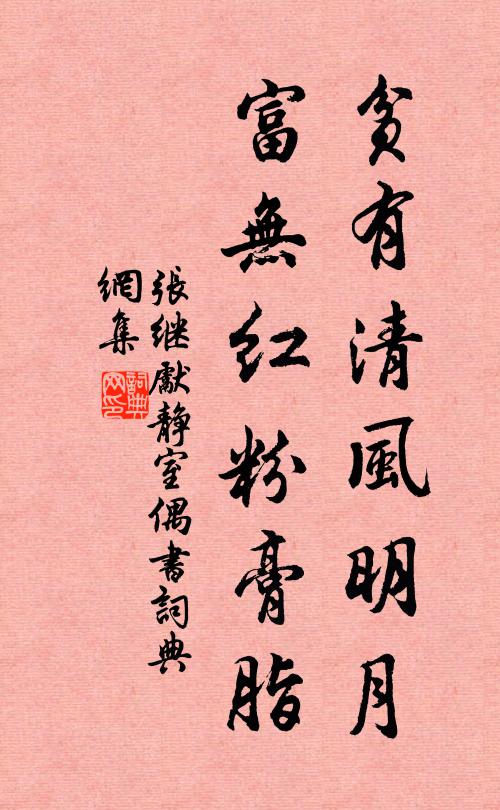 貧有清風明月
富無红粉膏脂
張继獻靜室偶書詞典
網集
詞典網印